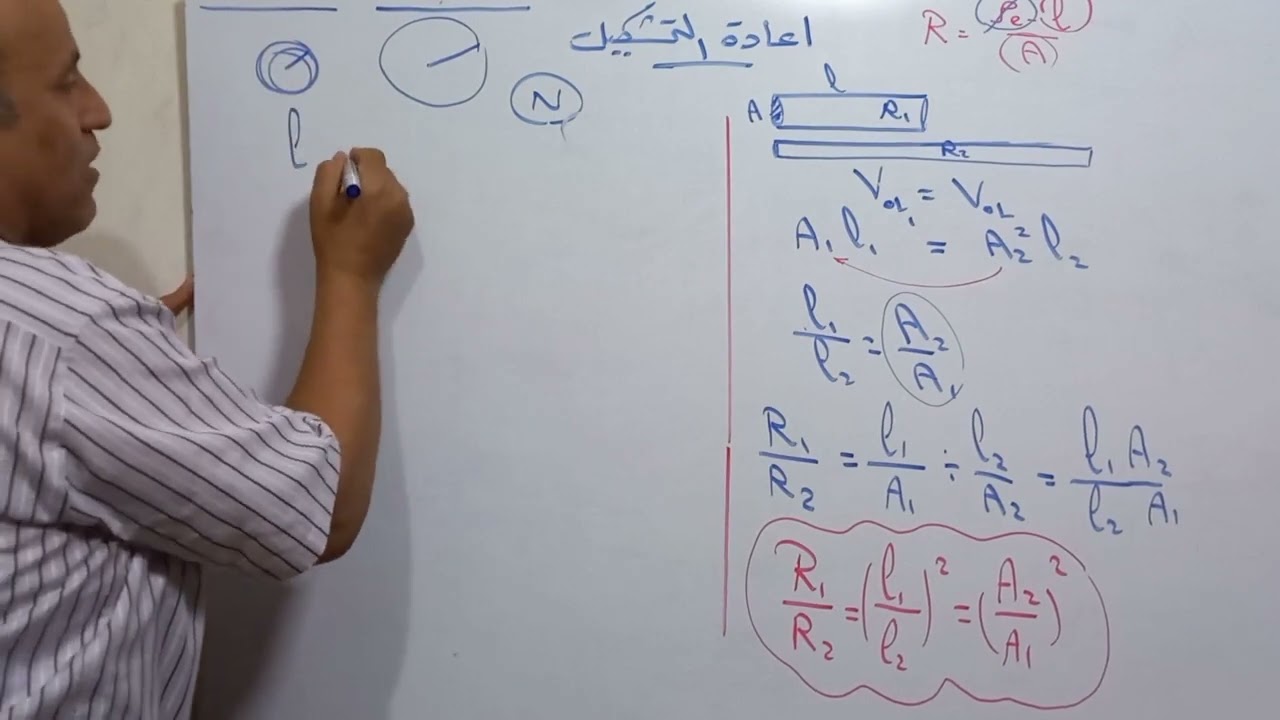 اعادة التشكيل
R = ρe l / (A)
N
l
l
A R₁
R₂
VoL₁ = VoL₂
A₁ l₁ = A₂² l₂
l₁/l₂ = A₂/A₁
R₁/R₂ = l₁/A₁ ÷ l₂/A₂ = l₁ A₂ / l₂ A₁
R₁/R₂ = (l₁/l₂)² = (A₂/A₁)²